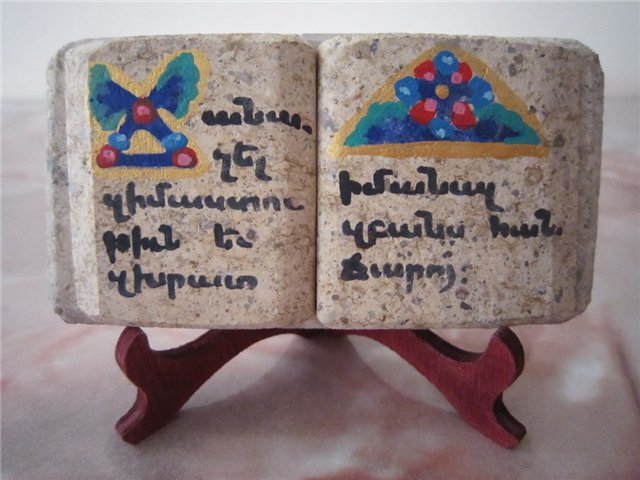 Ճանա-
չել
զիմաստու
թիւն եւ
զխրատ
իմանալ
զբանս հան-
ճարոյ: